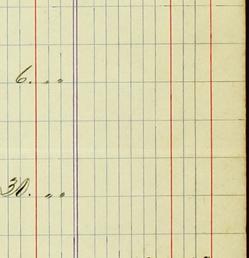 6. " "
30. " "